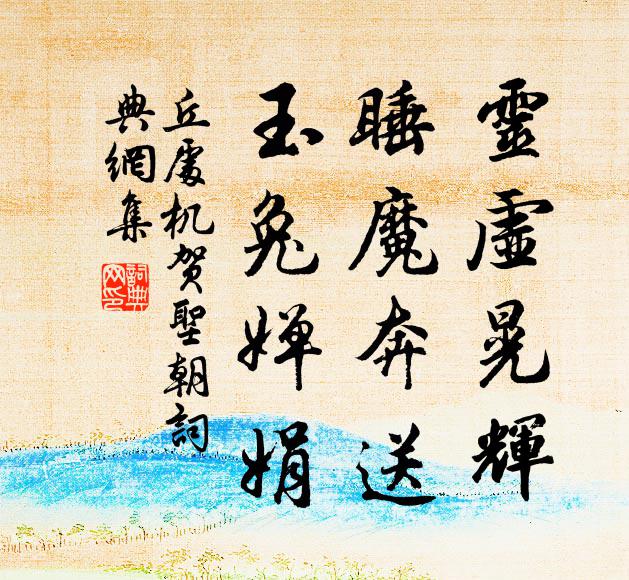 靈虛晃輝
睡魔奔送
玉兔嬋娟
丘處机賀聖朝詞
典網集
詞典网印